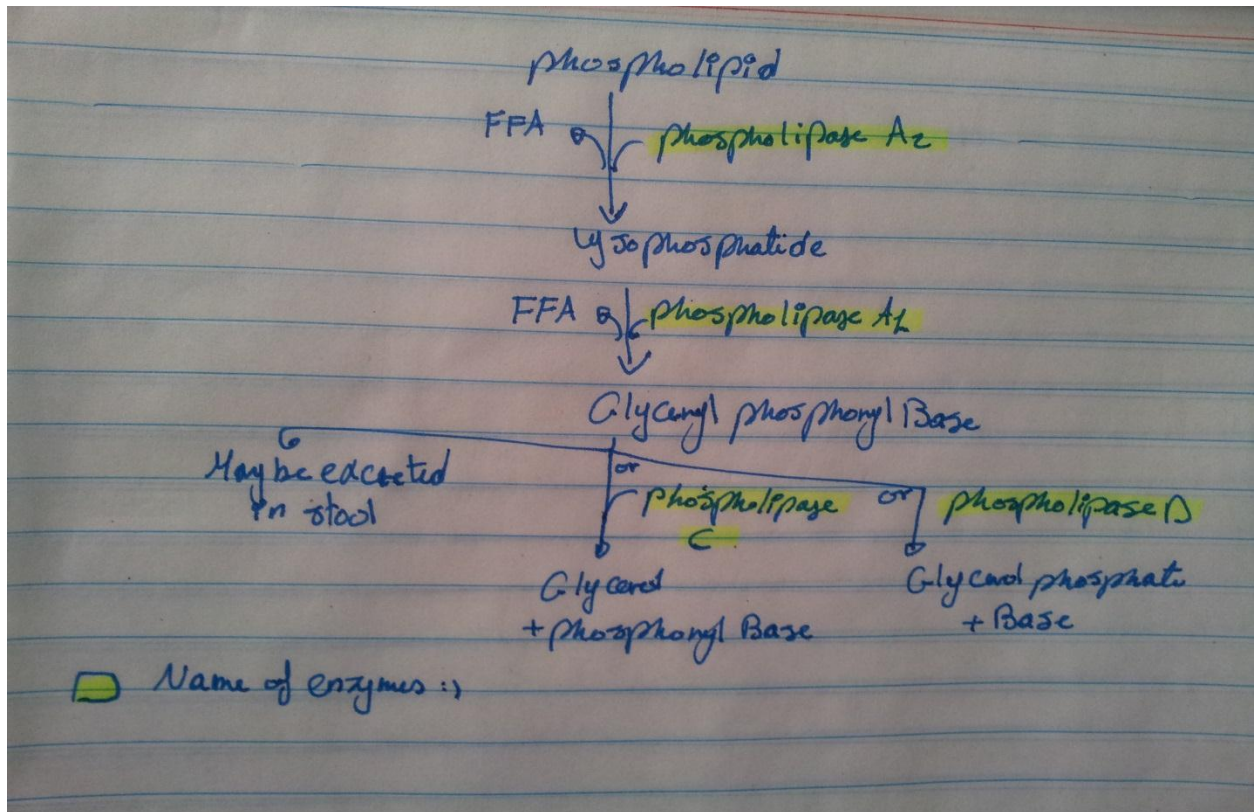 phospholipid
FFA phospholipase A2
Lysophosphatide
FFA phospholipase A1
Glyceryl phosphoryl Base
May be excreted
in stool
or
phospholipase
C
or
phospholipase D
Glycerol
+ phosphoryl Base
Glycerol phosphate
+ Base
Name of enzymes :)